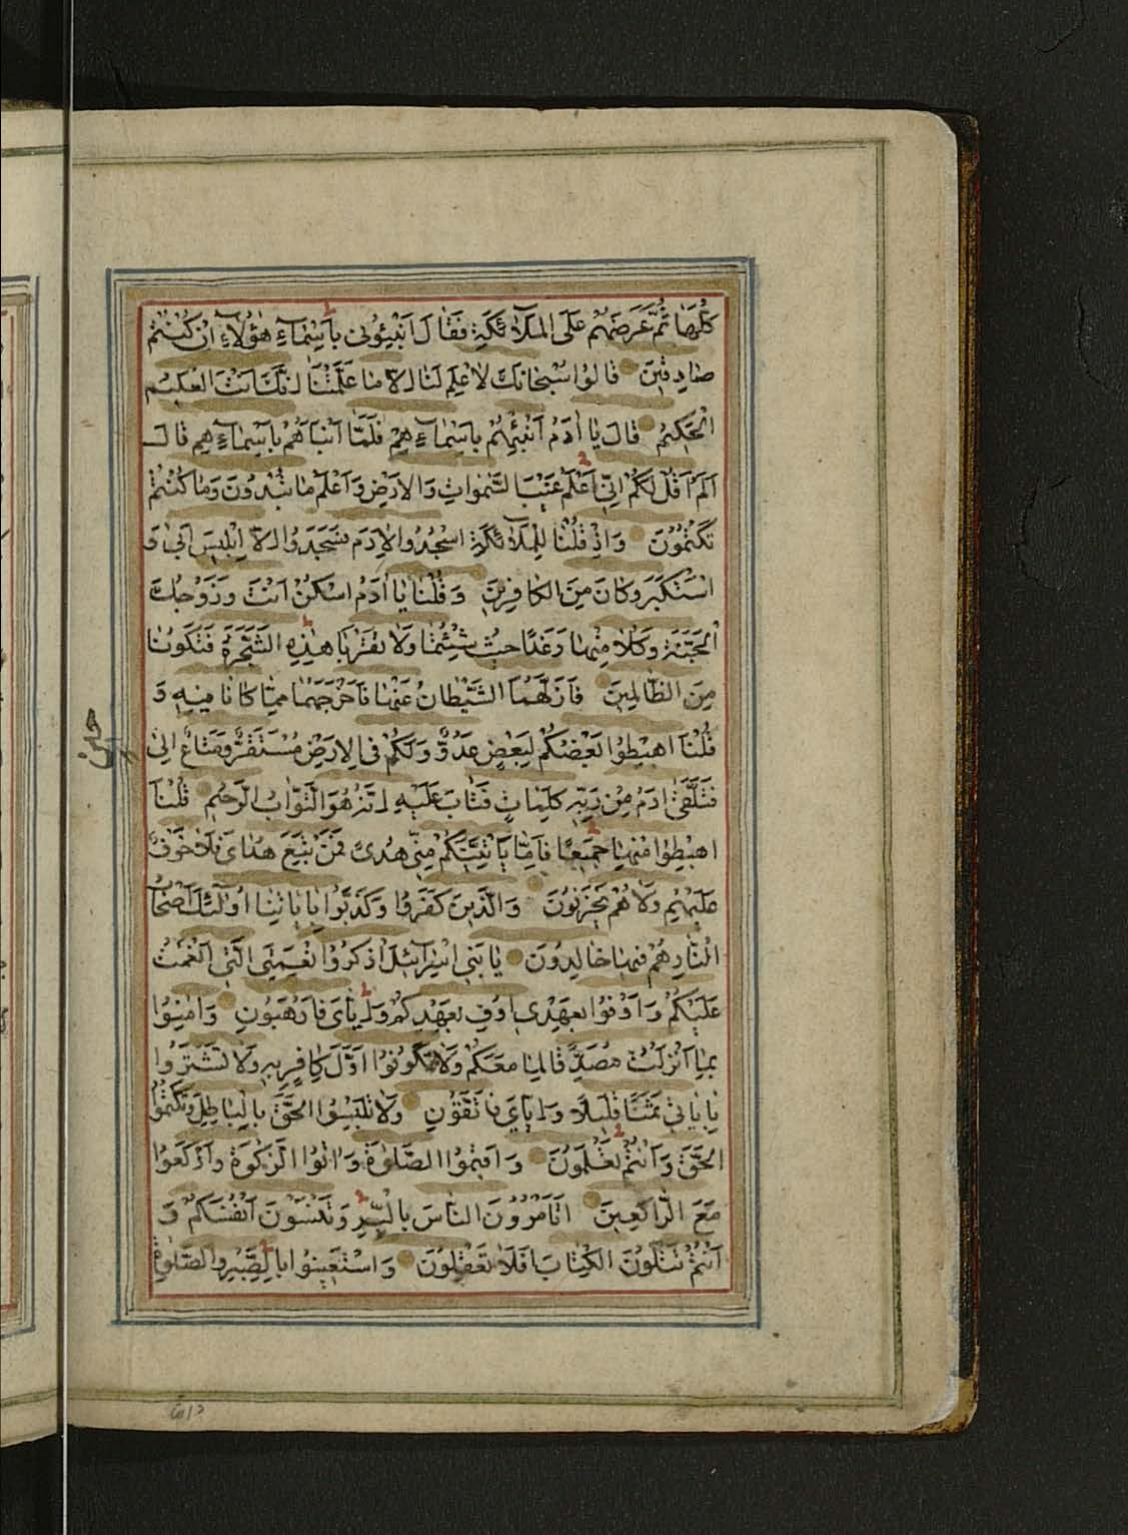 كُلَّهَا ثُمَّ عَرَضَهُمْ عَلَى الْمَلَآئِكَةِ فَقَالَ اَنْبِئُونِى بِاَسْمَآءِ هٰؤُلَآءِ اِنْ كُنْتُمْ
صَادِقِينَ قَالُوا سُبْحَانَكَ لَا عِلْمَ لَنَا اِلَّا مَا عَلَّمْتَنَا اِنَّكَ اَنْتَ الْعَلِيمُ
الْحَكِيمُ قَالَ يَا اٰدَمُ اَنْبِئْهُمْ بِاَسْمَآءِهِمْ فَلَمَّا اَنْبَاَهُمْ بِاَسْمَآءِهِمْ قَالَ
اَلَمْ اَقُلْ لَكُمْ اِنِّى اَعْلَمُ غَيْبَ السَّمٰوَاتِ وَالْاَرْضِ وَاَعْلَمُ مَا تُبْدُونَ وَمَا كُنْتُمْ
تَكْتُمُونَ وَاِذْ قُلْنَا لِلْمَلَآئِكَةِ اسْجُدُوا لِاٰدَمَ فَسَجَدُوا اِلَّا اِبْلِيسَ اَبٰى وَ
اسْتَكْبَرَ وَكَانَ مِنَ الْكَافِرِينَ وَقُلْنَا يَا اٰدَمُ اسْكُنْ اَنْتَ وَزَوْجُكَ
الْجَنَّةَ وَكُلَا مِنْهَا رَغَدًا حَيْثُ شِئْتُمَا وَلَا تَقْرَبَا هٰذِهِ الشَّجَرَةَ فَتَكُونَا
مِنَ الظَّالِمِينَ فَاَزَلَّهُمَا الشَّيْطَانُ عَنْهَا فَاَخْرَجَهُمَا مِمَّا كَانَا فِيهِ وَ
قُلْنَا اهْبِطُوا بَعْضُكُمْ لِبَعْضٍ عَدُوٌّ وَلَكُمْ فِى الْاَرْضِ مُسْتَقَرٌّ وَمَتَاعٌ اِلٰى
حِينٍ
فَتَلَقّٰى اٰدَمُ مِنْ رَبِّهِ كَلِمَاتٍ فَتَابَ عَلَيْهِ اِنَّهُ هُوَ التَّوَّابُ الرَّحِيمُ قُلْنَا
اهْبِطُوا مِنْهَا جَمِيعًا فَاِمَّا يَاْتِيَنَّكُمْ مِنِّى هُدًى فَمَنْ تَبِعَ هُدَاىَ فَلَا خَوْفٌ
عَلَيْهِمْ وَلَا هُمْ يَحْزَنُونَ وَالَّذِينَ كَفَرُوا وَكَذَّبُوا بِاٰيَاتِنَا اُولٰٓئِكَ اَصْحَابُ
النَّارِ هُمْ فِيهَا خَالِدُونَ يَا بَنِى اِسْرَآئِيلَ اذْكُرُوا نِعْمَتِىَ الَّتِى اَنْعَمْتُ
عَلَيْكُمْ وَاَوْفُوا بِعَهْدِى اُوفِ بِعَهْدِكُمْ وَاِيَّاىَ فَارْهَبُونِ وَاٰمِنُوا
بِمَا اَنْزَلْتُ مُصَدِّقًا لِمَا مَعَكُمْ وَلَا تَكُونُوا اَوَّلَ كَافِرٍ بِهِ وَلَا تَشْتَرُوا
بِاٰيَاتِى ثَمَنًا قَلِيلًا وَاِيَّاىَ فَاتَّقُونِ وَلَا تَلْبِسُوا الْحَقَّ بِالْبَاطِلِ وَتَكْتُمُوا
الْحَقَّ وَاَنْتُمْ تَعْلَمُونَ وَاَقِيمُوا الصَّلٰوةَ وَاٰتُوا الزَّكٰوةَ وَارْكَعُوا
مَعَ الرَّاكِعِينَ اَتَاْمُرُونَ النَّاسَ بِالْبِرِّ وَتَنْسَوْنَ اَنْفُسَكُمْ وَ
اَنْتُمْ تَتْلُونَ الْكِتَابَ اَفَلَا تَعْقِلُونَ وَاسْتَعِينُوا بِالصَّبْرِ وَالصَّلٰوةِ